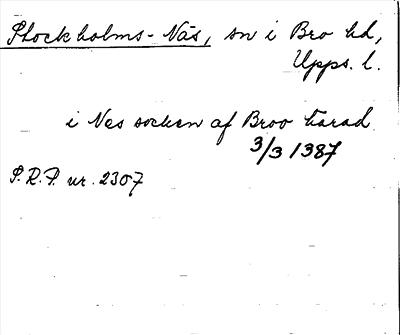 Stockholms-Näs, sn i Bro hd,
Upps. l.
i Nes sochen af Broo harad
3/3 1387
S.R.P. nr. 2307